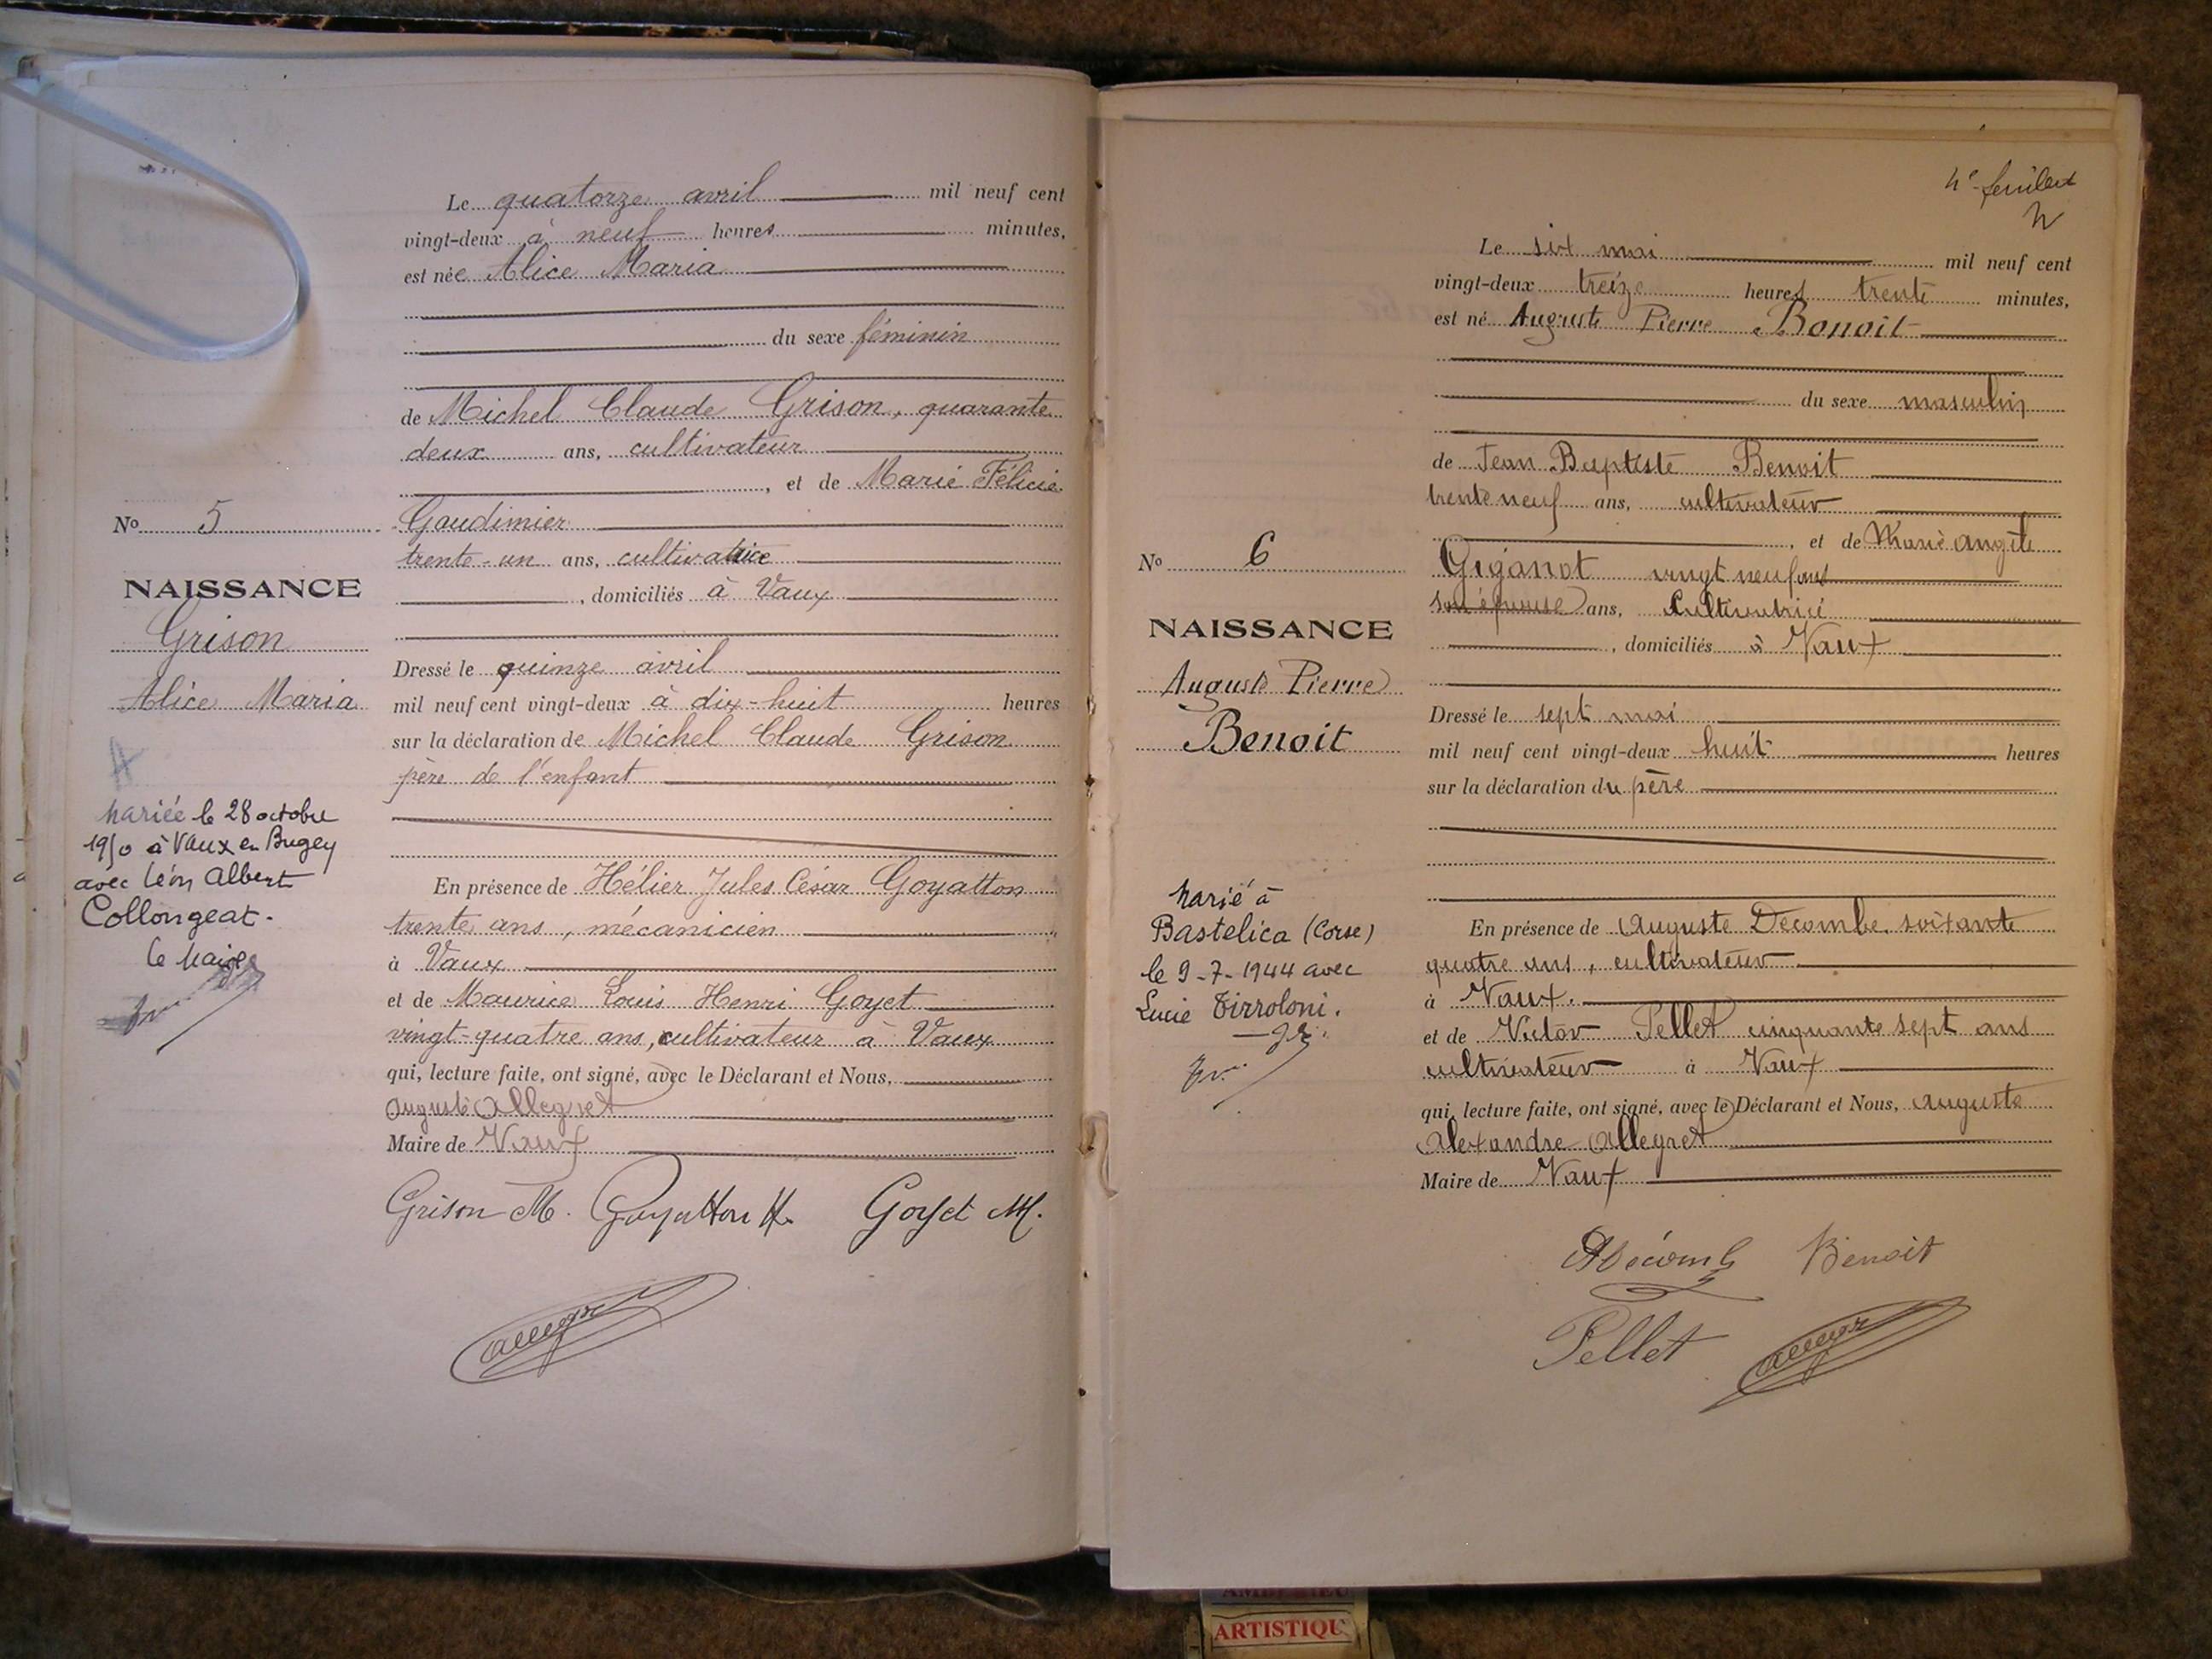 Le quatorze avril mil neuf cent
vingt-deux à neuf heures minutes,
est née Alice Maria
du sexe féminin
de Michel Claude Grison, quarante
deux ans, cultivateur
, et de Marie Félicie
Gaudimier
trente-un ans, cultivatrice
, domiciliés à Vaux
Dressé le quinze avril
mil neuf cent vingt-deux à dix-huit heures
sur la déclaration de Michel Claude Grison
père de l'enfant
En présence de Hélier Jules César Goyatton
trente ans, mécanicien
à Vaux
et de Maurice Louis Henri Goyet
vingt-quatre ans, cultivateur à Vaux
qui, lecture faite, ont signé, avec le Déclarant et Nous,
Auguste Allegret
Maire de Vaux
Grison M. Goyatton H. Goyet M.
Allegret
No 5
NAISSANCE
Grison
Alice Maria
A
Mariée le 28 octobre
1950 à Vaux en Bugey
avec Léon Albert
Collongeat.
Le Maire
4e feuillet
Le six mai mil neuf cent
vingt-deux treize heures trente minutes,
est né Auguste Pierre Benoit
du sexe masculin
de Jean Baptiste Benoit
trente neuf ans, cultivateur
, et de Marie
Giganot vingt neuf ans
son épouse ans, Cultivatrice
, domiciliés à Vaux
Dressé le sept mai
mil neuf cent vingt-deux huit heures
sur la déclaration du père
En présence de Auguste Decombe, soixante
quatre ans, cultivateur
à Vaux.
et de Victor Pellet cinquante sept ans
cultivateur à Vaux
qui, lecture faite, ont signé, avec le Déclarant et Nous, Auguste
Alexandre Allegret
Maire de Vaux
Benoit
Pellet Allegret
No 6
NAISSANCE
Auguste Pierre
Benoit
Marié à
Bastelica (Corse)
le 9-7-1944 avec
Lucie Tirroloni.
ARTISTIQU